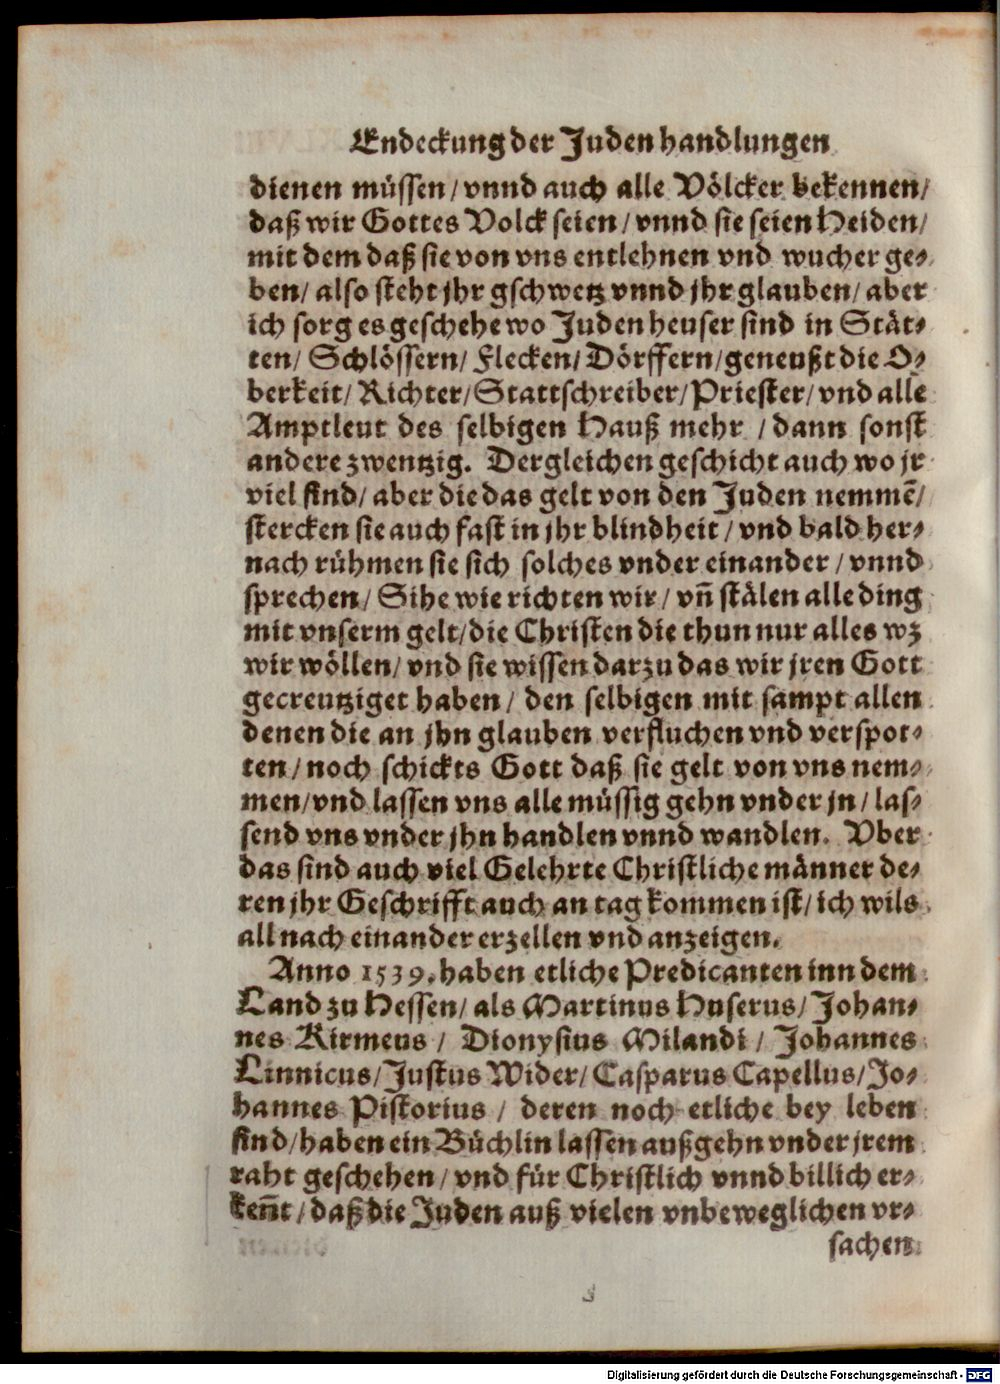 Endeckung der Juden handlungen
dienen müssen/ vnnd auch alle Völcker bekennen/
daß wir Gottes Volck seien/ vnnd sie seien Heiden/
mit dem daß sie von vns entlehnen vnd wucher ge⸗
ben/ also steht jhr gschwetz vnnd jhr glauben/ aber
ich sorg es geschehe wo Juden heuser sind in Stät⸗
ten/ Schlössern/ Flecken/ Dörffern/ geneußt die O⸗
berkeit/ Richter/ Stattschreiber/ Priester/ vnd alle
Amptleut des selbigen Hauß mehr / dann sonst
andere zwentzig. Dergleichen geschicht auch wo jr
viel sind/ aber die das gelt von den Juden nemmē/
stercken sie auch fast in jhr blindheit / vnd bald her⸗
nach rühmen sie sich solches vnder einander / vnnd
sprechen/ Sihe wie richten wir/ vn̄ stälen alle ding
mit vnserm gelt/ die Christen die thun nur alles wz
wir wöllen/ vnd sie wissen darzu das wir jren Gott
gecreutziget haben/ den selbigen mit sampt allen
denen die an jhn glauben verfluchen vnd verspot⸗
ten/ noch schickts Gott daß sie gelt von vns nem⸗
men/ vnd lassen vns alle müssig gehn vnder jn/ las⸗
send vns vnder jhn handlen vnnd wandlen. Vber
das sind auch viel Gelehrte Christliche männer de⸗
ren jhr Geschrifft auch an tag kommen ist/ ich wils
all nach einander erzellen vnd anzeigen.
Anno 1539. haben etliche Predicanten inn dem
Land zu Hessen/ als Martinus Huserus/ Johan⸗
nes Kirmeus / Dionysius Milandi / Johannes
Linnicus/ Justus Wider/ Casparus Capellus/ Jo⸗
hannes Pistorius / deren noch etliche bey leben
sind/ haben ein Büchlin lassen außgehn vnder jrem
raht geschehen/ vnd für Christlich vnnd billich er⸗
ken̄t / daß die Juden auß vielen vnbeweglichen vr⸗
sachen
Digitalisierung gefördert durch die Deutsche Forschungsgemeinschaft - DFG